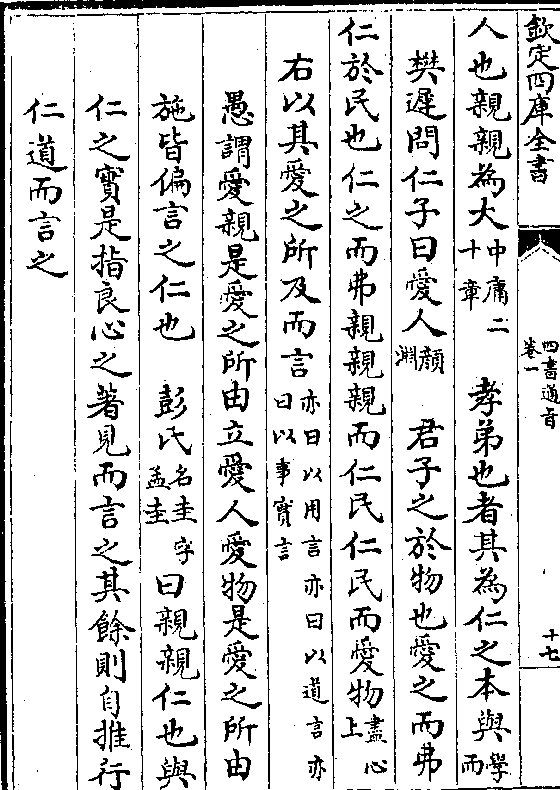 欽定四庫全書
四書通旨
卷一
十七
人也親親為大中庸二十章 孝弟也者其為仁之本與學而
樊遲問仁子曰愛人顏淵 君子之於物也愛之而弗
仁於民也仁之而弗親親親而仁民仁民而愛物盡心上
右以其愛之所及而言亦曰以用言亦曰以道言亦曰以事實言
愚謂愛親是愛之所由立愛人愛物是愛之所由
施皆偏言之仁也 彭氏名圭字孟圭曰親親仁也與
仁之實是指良心之著見而言之其餘則自推行
仁道而言之